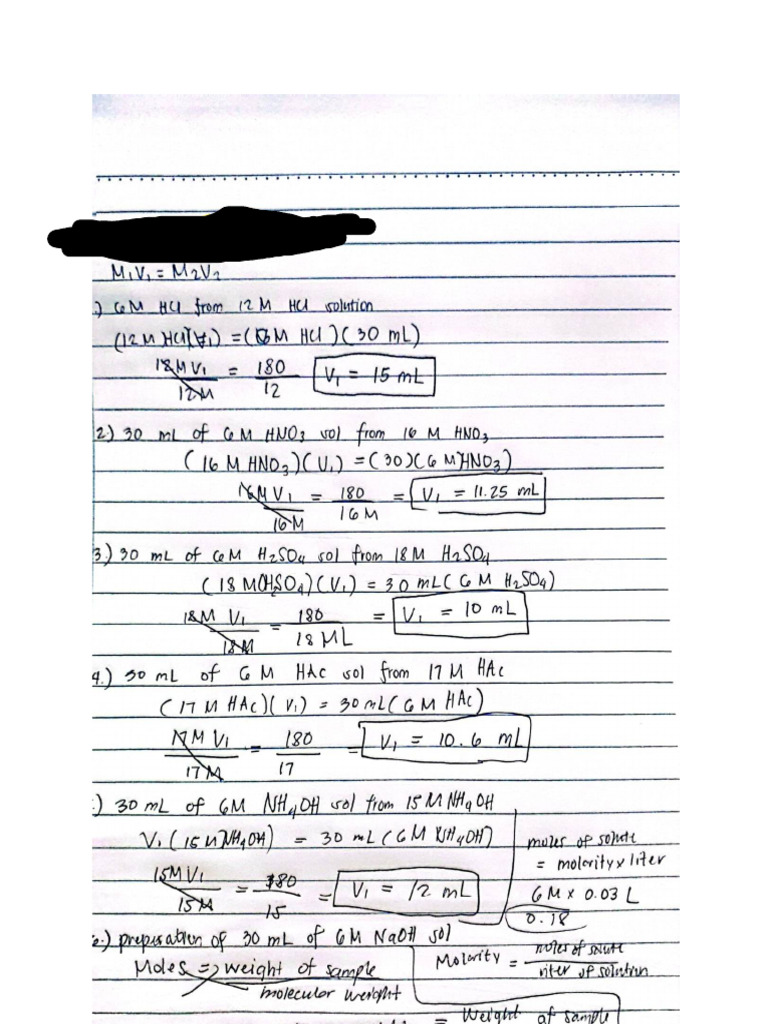 M₁V₁ = M₂V₂
.) 6M HCl from 12 M HCl solution
(12 M HCl)(V₁) = (6M HCl)(30 mL)
12M V₁ / 12M = 180 / 12 V₁ = 15 mL
2.) 30 mL of 6M HNO₃ sol from 16 M HNO₃
(16 M HNO₃)(V₁) = (30)(6M HNO₃)
16M V₁ / 16M = 180 / 16M = V₁ = 11.25 mL
3) 30 mL of 6M H₂SO₄ sol from 18M H₂SO₄
(18 M H₂SO₄)(V₁) = 30 mL (6M H₂SO₄)
18M V₁ / 18M = 180 / 18 ML = V₁ = 10 mL
4.) 30 mL of 6M HAc sol from 17 M HAc
(17 M HAc)(V₁) = 30 mL (6M HAc)
17M V₁ / 17M = 180 / 17 = V₁ = 10.6 mL
.) 30 mL of 6M NH₄OH sol from 15M NH₄OH
V₁ (15M NH₄OH) = 30 mL (6M NH₄OH)
15MV₁ / 15M = 180 / 15 = V₁ = 12 mL
moles of solute
= molarity x liter
6M x 0.03 L
0.18
6.) preparation of 30 mL of 6M NaOH sol
Moles => weight of sample / molecular weight
Molarity = moles of solute / liter of solution
= Weight of sample